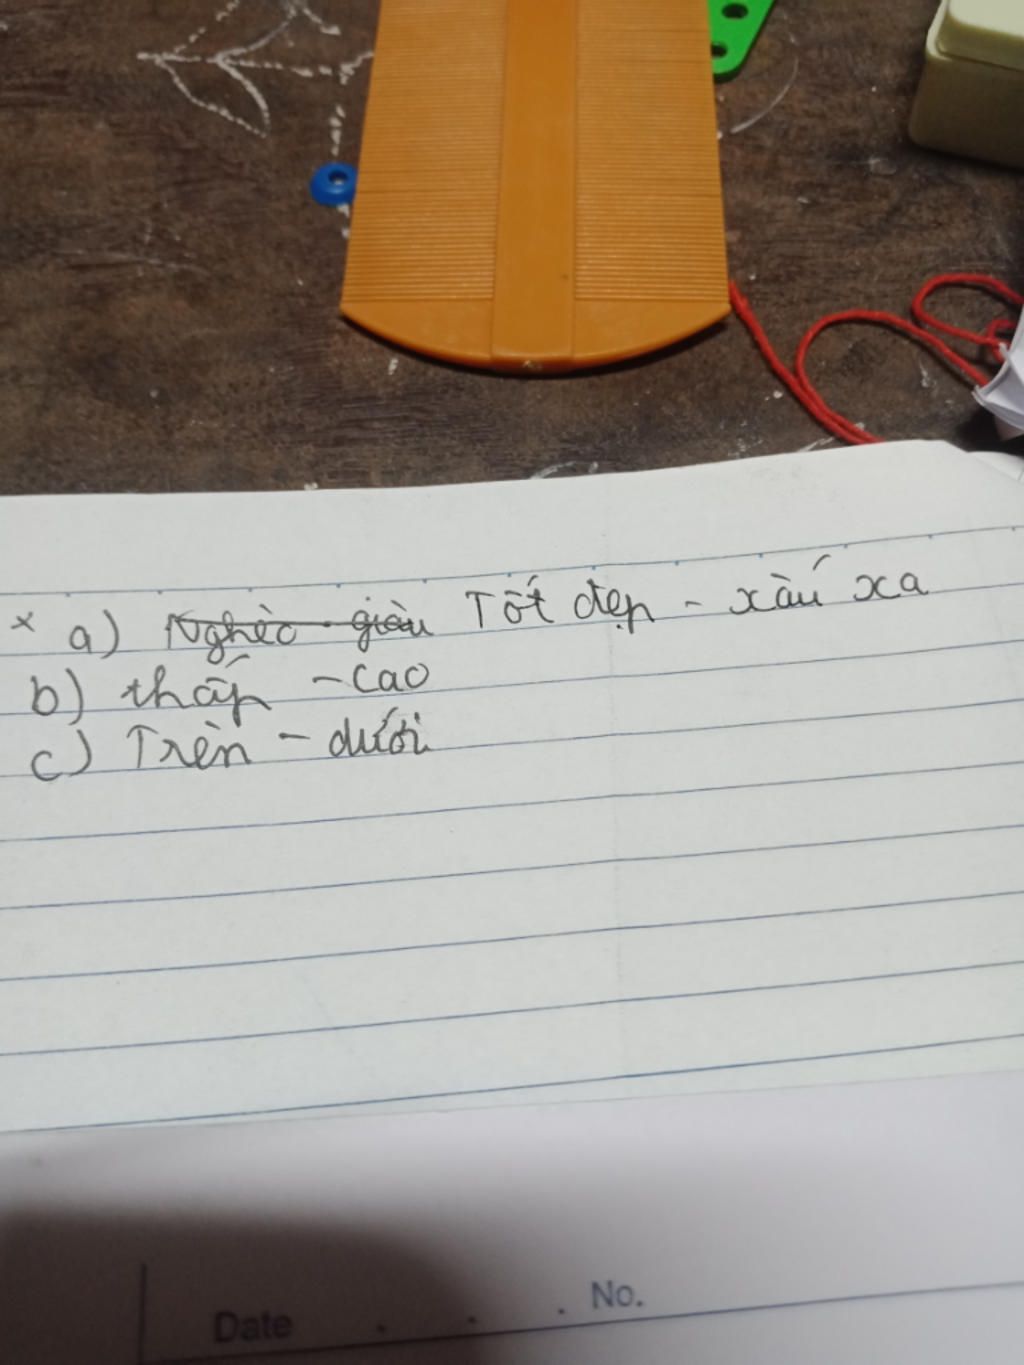 x a) Nghèo - giàu Tốt đẹp - xấu xa
b) thấp - Cao
c) Trên - dưới
Date . . . No.